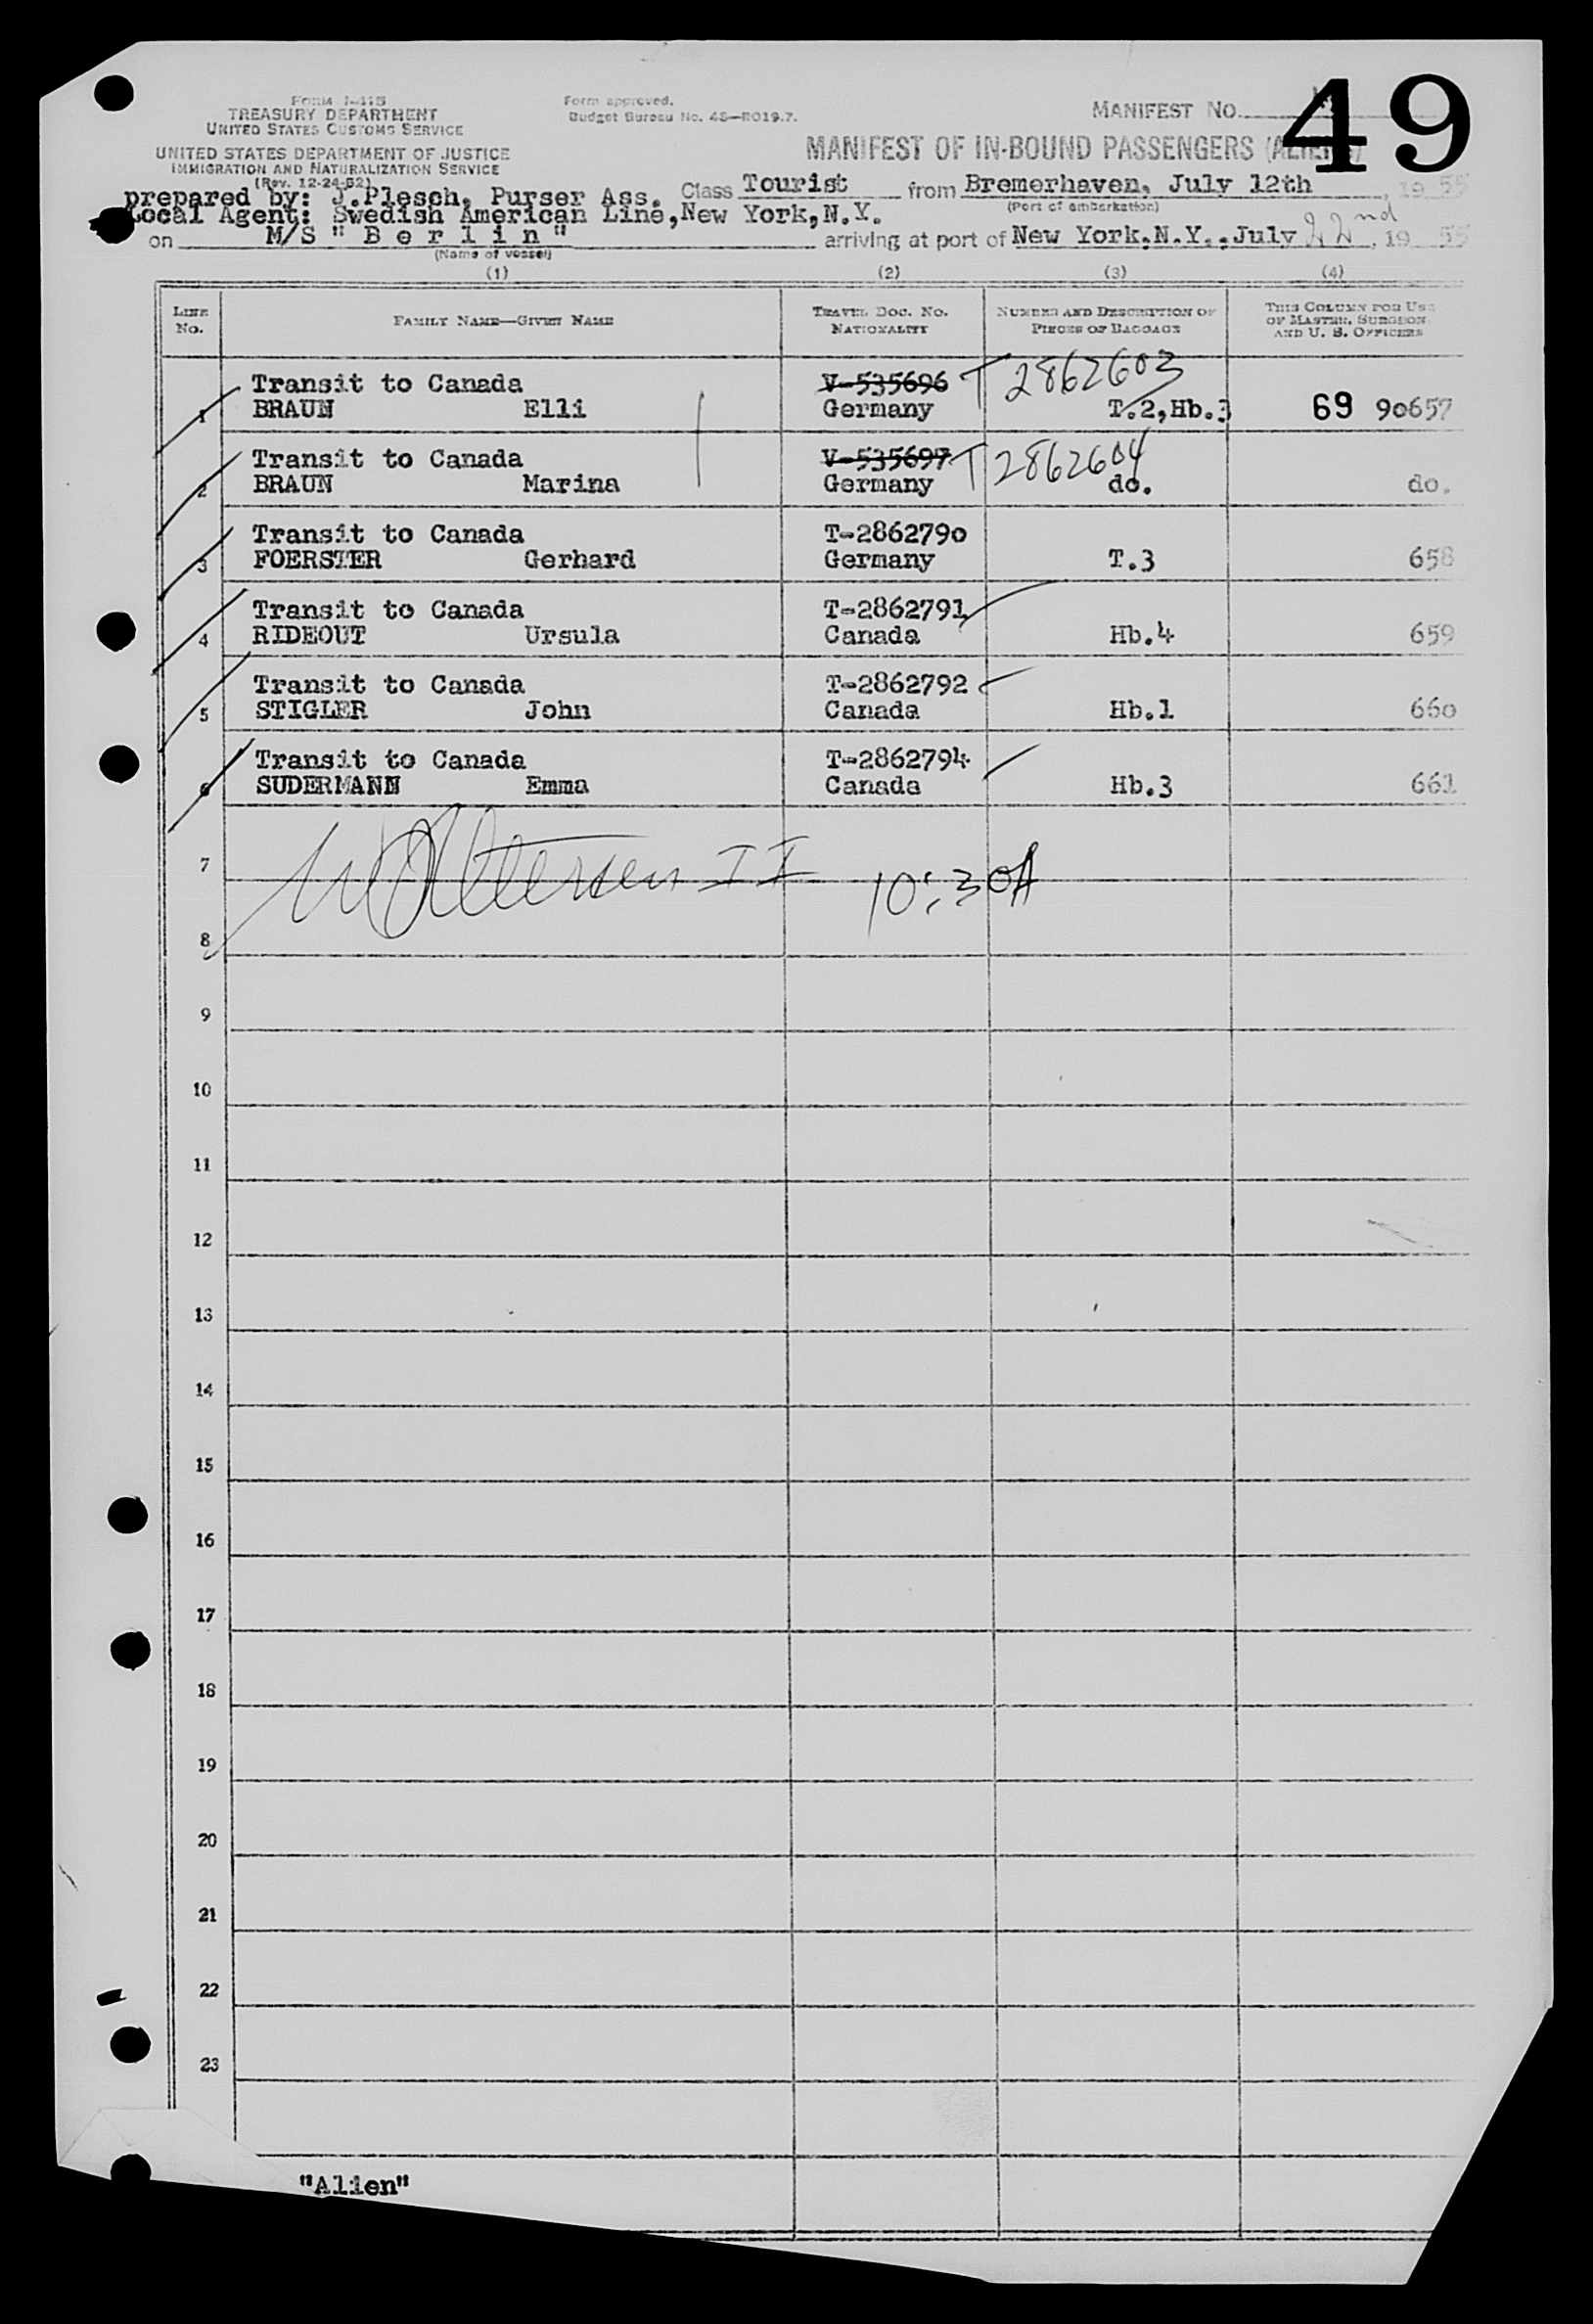 49
FORM I-418
TREASURY DEPARTMENT
UNITED STATES CUSTOMS SERVICE
UNITED STATES DEPARTMENT OF JUSTICE
IMMIGRATION AND NATURALIZATION SERVICE
(Rev. 12-24-52)
Form approved.
Budget Bureau No. 43—R019.7.
MANIFEST NO.
MANIFEST OF IN-BOUND PASSENGERS (ALIENS)
prepared by: J.Plesch, Purser Ass. Class Tourist from Bremerhaven, July 12th, 1955
(Port of embarkation)
Local Agent: Swedish American Line,New York,N.Y.
on M/S "B e r l i n" arriving at port of New York,N.Y.,July 22nd, 1955
(Name of vessel)
(1) (2) (3) (4)
LINE NO. FAMILY NAME—GIVEN NAME TRAVEL DOC. NO. NATIONALITY NUMBER AND DESCRIPTION OF PIECES OF BAGGAGE THIS COLUMN FOR USE OF MASTER, SURGEON, AND U. S. OFFICERS
Transit to Canada V-535696 T 2862603
1 BRAUN Elli Germany T.2,Hb.3 69 90657
Transit to Canada V-535697 T 2862604
2 BRAUN Marina Germany do. do.
Transit to Canada T-2862790
3 FOERSTER Gerhard Germany T.3 658
Transit to Canada T-2862791
4 RIDEOUT Ursula Canada Hb.4 659
Transit to Canada T-2862792
5 STIGLER John Canada Hb.1 660
Transit to Canada T-2862794
6 SUDERMANN Emma Canada Hb.3 661
7 II 10:30A
8
9
10
11
12
13
14
15
16
17
18
19
20
21
22
23
"Alien"